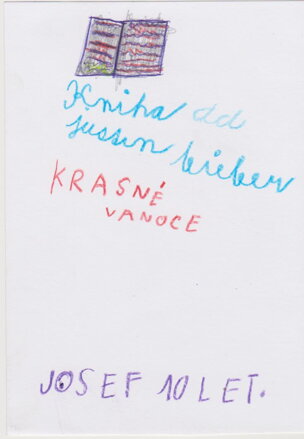 Kniha od
justin bieber
KRASNÉ
VANOCE
JOSEF 10 LET.